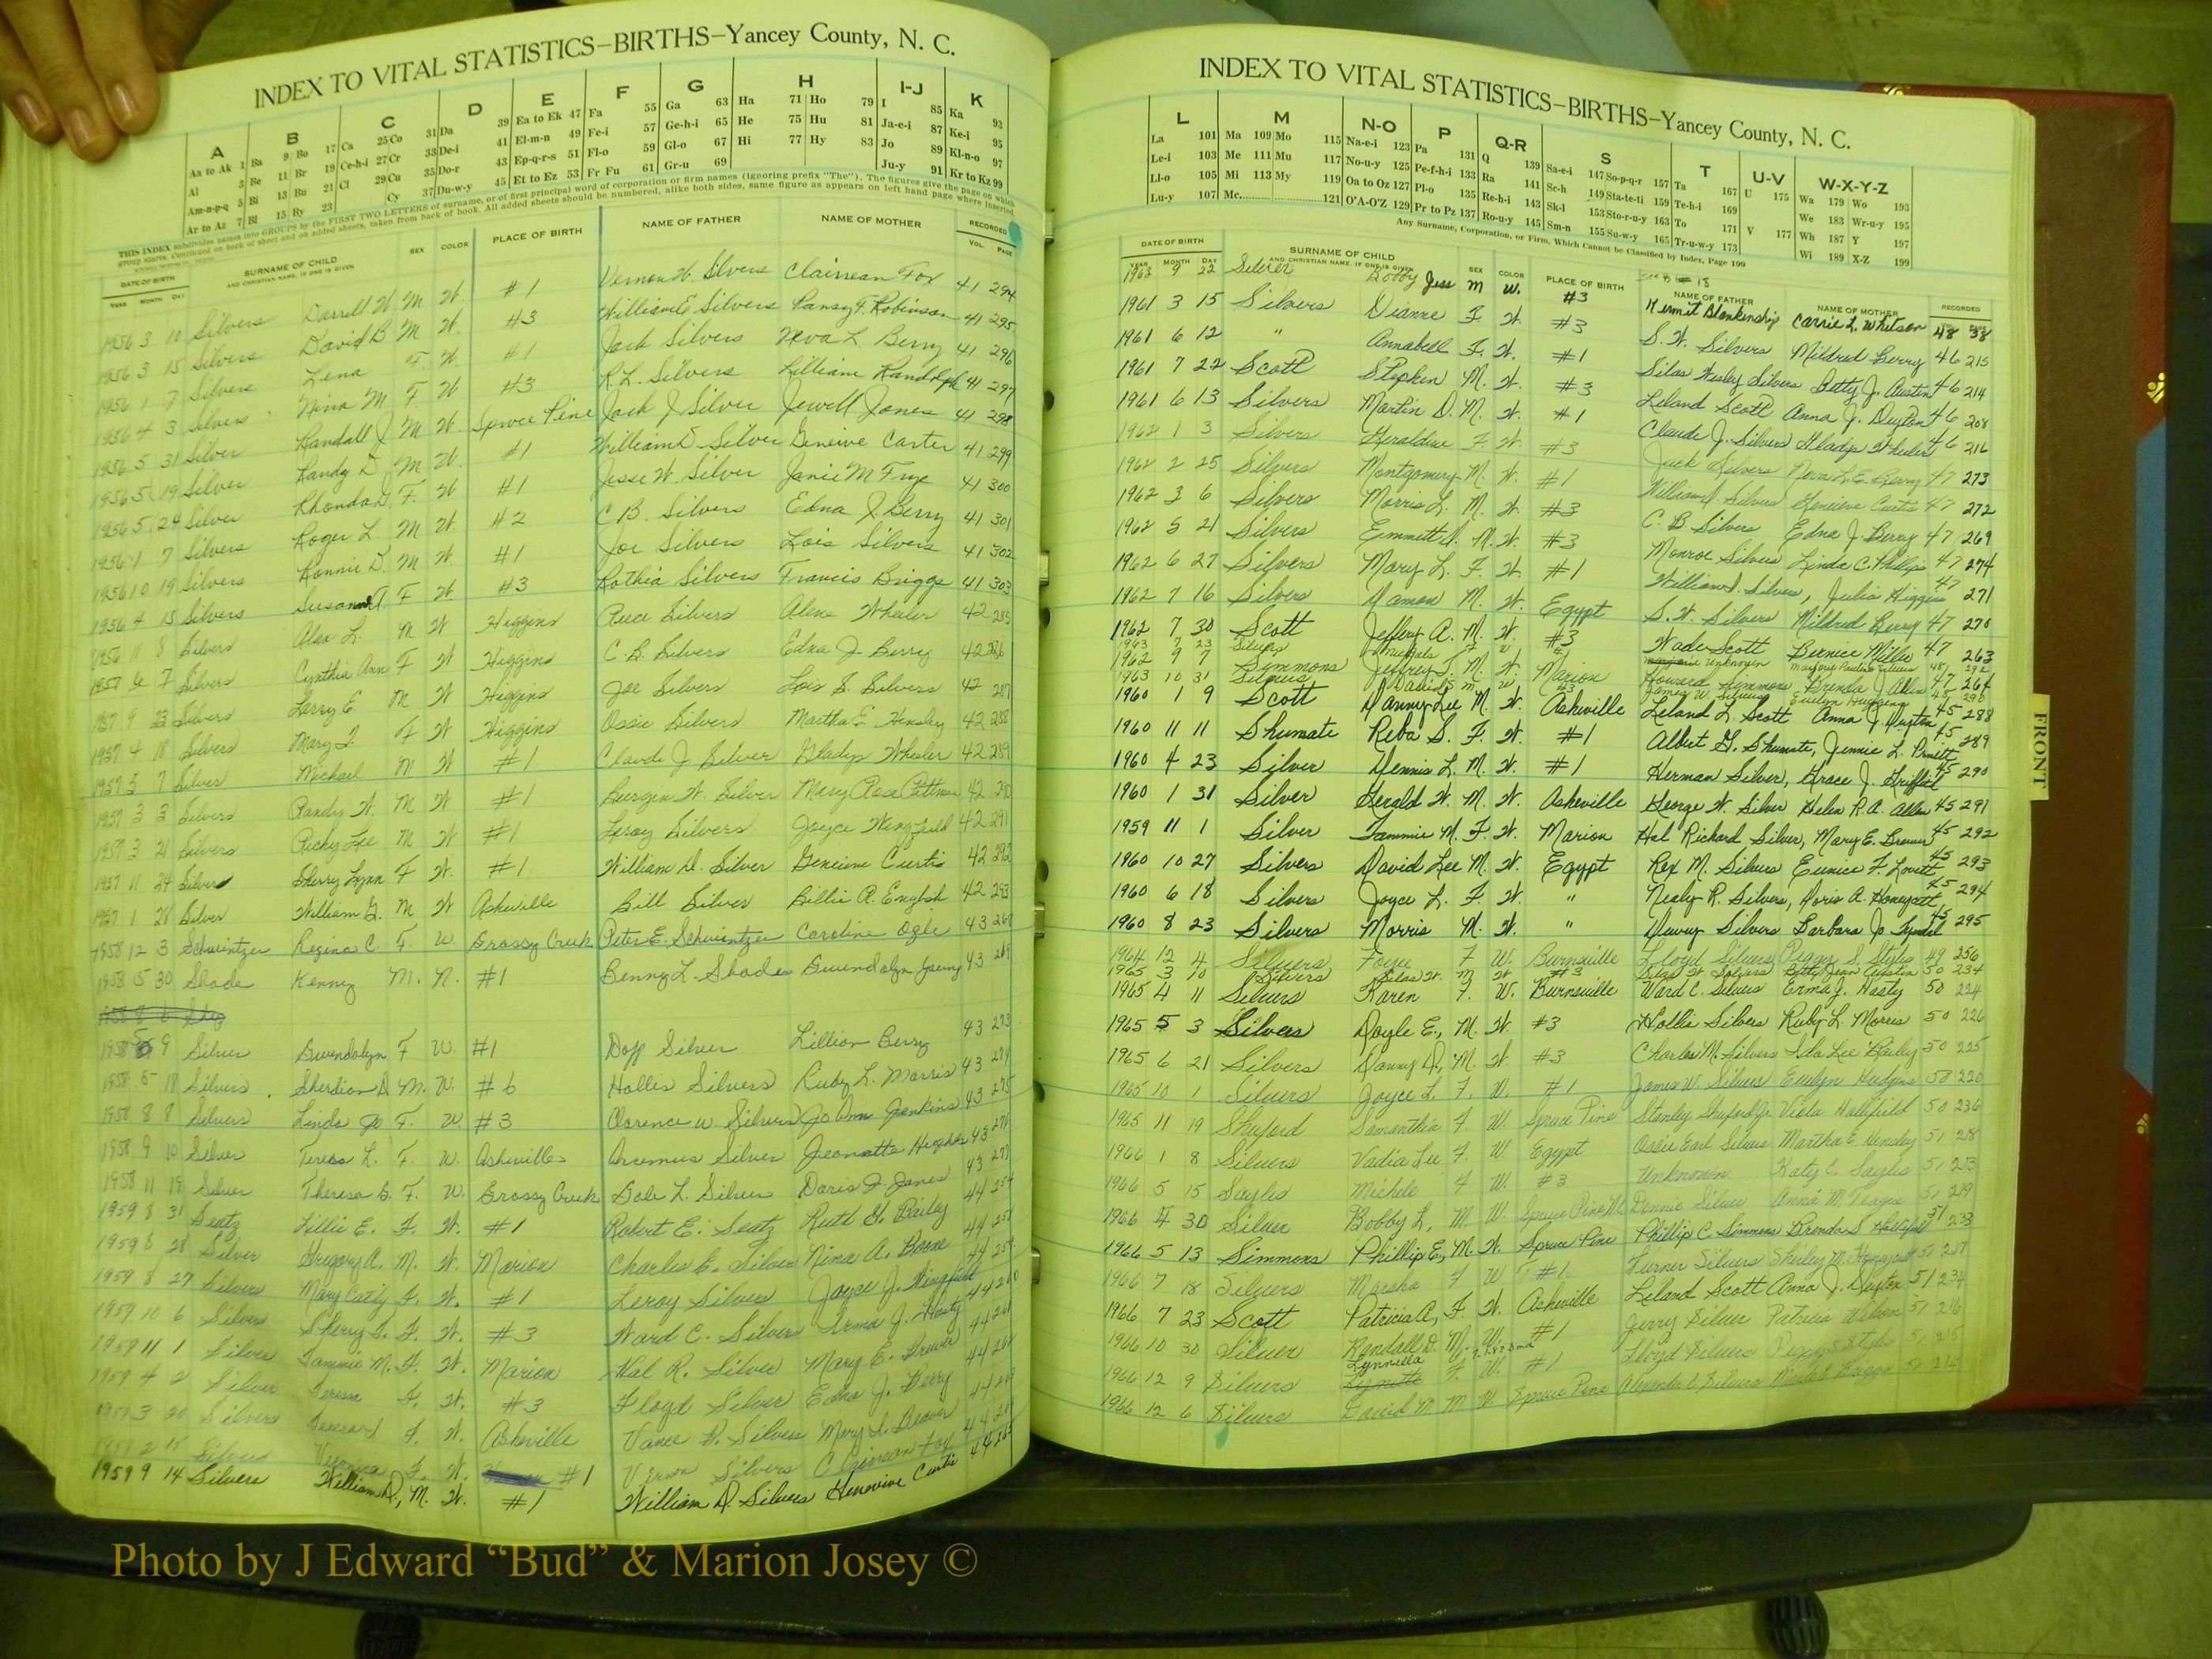 INDEX TO VITAL STATISTICS–BIRTHS–Yancey County, N. C.
A B C D E F G H I-J K
Aa to Ak 1 Ba 9 Bo 17 Ca 25 Co 31 Da 39 Ea to Ek 47 Fa 55 Ga 63 Ha 71 Ho 79 I 85 Ka 93
Al 3 Be 11 Br 19 Ce-h-i 27 Cr 33 De-i 41 El-m-n 49 Fe-i 57 Ge-h-i 65 He 75 Hu 81 Ja-e-i 87 Ke-i 95
Am-n-p-q 5 Bi 13 Bu 21 Cl 29 Cu 35 Do-r 43 Ep-q-r-s 51 Fl-o 59 Gl-o 67 Hi 77 Hy 83 Jo 89 Kl-n-o 97
Ar to Az 7 Bl 15 By 23 Cy 37 Du-w-y 45 Et to Ez 53 Fr Fu 61 Gr-u 69 Ju-y 91 Kr to Kz 99
THIS INDEX subdivides names into GROUPS by the FIRST TWO LETTERS of surname, or of first principal word of corporation or firm names (ignoring prefix "The"). The figures give the page on which
group starts. Continued on back of sheet and on added sheets, taken from back of book. All added sheets should be numbered, alike both sides, same figure as appears on left hand page where inserted.
DATE OF BIRTH SURNAME OF CHILD SEX COLOR PLACE OF BIRTH NAME OF FATHER NAME OF MOTHER RECORDED
YEAR MONTH DAY AND CHRISTIAN NAME, IF ONE IS GIVEN VOL. PAGE
1956 3 10 Silvers Darrell W. M W. #1 Vernon W. Silvers Clairrean Fox 41 294
1956 3 15 Silvers David B M W. #3 William E Silvers Pansy F. Robinson 41 295
1956 1 7 Silvers Lena F. W. #1 Jack Silvers Neva L. Berry 41 296
1956 4 3 Silvers Nina M F W #3 R. L. Silvers Lilliane Randolph 41 297
1956 5 31 Silver Randall J M W Spruce Pine Jack J Silver Jewell Jones 41 298
1956 5 19 Silver Randy D M W. #1 William D Silver Geneive Carter 41 299
1956 5 24 Silver Rhonda G. F. W #1 Jesse W. Silver Janie M Frye 41 300
1956 1 7 Silvers Roger L. M W. #2 C B. Silvers Edna J. Berry 41 301
1956 10 19 Silvers Ronnie D. M W. #1 Joe Silvers Lois Silvers 41 302
1956 4 15 Silvers Susann A. F W. #3 Rothia Silvers Francis Briggs 41 303
1956 11 8 Silvers Alen L. M W Higgins Reece Silvers Alene Wheeler 42 285
1957 6 7 Silvers Cynthia Ann F W Higgins C. B. Silvers Edna J. Berry 42 286
1957 9 23 Silvers Larry E M W Higgins Joe Silvers Lois S. Silvers 42 287
1957 4 18 Silvers Mary F. F W Higgins Ossie Silvers Martha E Hensley 42 288
1957 5 7 Silver Michael M W #1 Claude J Silver Gladys Wheeler 42 289
1957 3 3 Silvers Randy W. M W #1 Burgin W. Silver Mary Rose Pittman 42 290
1957 3 21 Silvers Ricky Lee M W #1 Leroy Silvers Joyce Wingfield 42 291
1957 11 24 Silvers Sherry Lynn F W. #1 William D. Silver Genevieve Curtis 42 292
1957 1 28 Silver William G. M W Asheville Bill Silver Billie R. English 42 293
1958 12 3 Schwintzer Regina C. F. W. Grassy Creek Peter E. Schwintzer Caroline Ogle 43 260
1958 5 30 Shade Kenny M. N. #1 Benny L. Shade Gwendolyn Young 43 269
1958 5 9 Silver Gwendolyn F W. #1 Doff Silver Lillian Berry 43 273
1958 5 18 Silvers Sherdian D. M. W. #6 Hollis Silvers Ruby L. Morris 43 274
1958 8 8 Silvers Linda Jo F. W #3 Clarence W Silvers Jo Ann Jenkins 43 275
1958 9 10 Silver Teresa L. F. W. Asheville Arcemus Silver Jeanette Hughes 43 276
1958 11 19 Silver Theresa G. F. W. Grassy Creek Dale L. Silver Doris J. Jones 43 277
1959 8 31 Seatz Lillie E. F. W. #1 Robert E. Seatz Ruth H. Bailey 44 254
1959 6 28 Silver Gregory A. M. W. Marion Charles C. Silver Nina A. Boone 44 258
1959 8 27 Silvers Mary Cathy F. W. #1 Leroy Silvers Joyce J. Wingfield 44 260
1959 10 6 Silvers Sherry S. F. W. #3 Ward C. Silvers Irma J. Hasty 44 261
1959 11 1 Silver Tammie M. F. W. Marion Hal R. Silver Mary E. Brewer 44
1959 4 2 Silver Teresa F. W. #3 Floyd Silver Edna J. Berry 44
Silvers F. W. Asheville Vance B. Silvers Mary L. Beaver 44
Silvers Veronica F. W. #1 Vernon Silvers C Fox 44
1959 9 14 Silvers William D., M. W. #1 William D. Silvers Genevive Curtis 44 265
INDEX TO VITAL STATISTICS–BIRTHS–Yancey County, N. C.
L M N-O P Q-R S T U-V W-X-Y-Z
La 101 Ma 109 Mo 115 Na-e-i 123 Pa 131 Q 139 Sa-e-i 147 So-p-q-r 157 Ta 167 U 175 Wa 179 Wo 193
Le-i 103 Me 111 Mu 117 No-u-y 125 Pe-f-h-i 133 Ra 141 Sc-h 149 Sta-te-ti 159 Te-h-i 169 We 183 Wr-u-y 195
Ll-o 105 Mi 113 My 119 Oa to Oz 127 Pl-o 135 Re-h-i 143 Sk-l 153 Sto-r-u-y 163 To 171 V 177 Wh 187 Y 197
Lu-y 107 Mc 121 O'A-O'Z 129 Pr to Pz 137 Ro-u-y 145 Sm-n 155 Su-w-y 165 Tr-u-w-y 173 Wi 189 X-Z 199
Any Surname, Corporation, or Firm, Which Cannot be Classified by Index, Page 199
DATE OF BIRTH SURNAME OF CHILD SEX COLOR PLACE OF BIRTH NAME OF FATHER NAME OF MOTHER RECORDED
YEAR MONTH DAY AND CHRISTIAN NAME, IF ONE IS GIVEN
1963 9 22 Silver Bobby Jess M W. #3 Kermit Blankenship Carrie L. Whitson 48 38
1961 3 15 Silvers Dianne F. W. #3 S. W. Silvers Mildred Berry 46 215
1961 6 12 " Annabell F. W. #1 Silas Wesley Silvers Betty J. Austin 46 214
1961 7 22 Scott Stephen M. W. #3 Leland Scott Anna J. Deyton 46 208
1961 6 13 Silvers Martin D. M. W. #1 Claude J. Silvers Gladys Wheeler 46 216
1962 1 3 Silvers Geraldine F. W. #3 Jack Silvers Neva L. E. Berry 47 273
1962 2 25 Silvers Montgomery M. W. #1 William D. Silvers Genevieve Curtis 47 272
1962 3 6 Silvers Morris L. M. W. #3 C. B Silvers Edna J. Berry 47 269
1962 5 21 Silvers Emmett D. M. W. #3 Monroe Silvers Linda C. Phillips 47 274
1962 6 27 Silvers Mary L. F. W. #1 William D. Silvers, Julia Higgins 47 271
1962 7 16 Silvers Damon M. W. Egypt S. W. Silvers Mildred Berry 47 270
1962 7 30 Scott Jeffery A. M. W. #3 Wade Scott Bernice Mille 47 263
1963 7 23 Silvers Unknown Marjory Pauline Silvers 48
1962 9 7 Simmons Jeffrey T. M. W. Marion Howard Simmons Brenda J Allen 47 264
1963 10 31 Silvers David S M W #3 James W. Silvers Evelyn Hudgins 290
1960 1 9 Scott Danny Lee M. W. Asheville Leland L. Scott Anna J. Deyton 45 288
1960 11 11 Shumate Reba S. F. W. #1 Albert G. Shumate, Jennie L. Pruitt 45 289
1960 4 23 Silver Dennis L. M. W. #1 Herman Silver, Grace J. Griffith 45 290
1960 1 31 Silver Gerald W. M. W. Asheville George W. Silver Helen R. A. Allen 45 291
1959 11 1 Silver Tammie M. F. W. Marion Hal Richard Silver, Mary E. Brewer 45 292
1960 10 27 Silvers David Lee M. W. Egypt Rex M. Silvers Eunice F. Lovett 45 293
1960 6 18 Silvers Joyce L. F. W. " Nealy R. Silvers, Doris A. Honeycutt 45 294
1960 8 23 Silvers Morris M. W. " Dewey Silvers Barbara Jo 45 295
1964 12 4 Silvers Foyce F W. Burnsville Lloyd Silvers Peggy S. Styles 49 256
1965 3 10 Silvers Silas W. M W #3 Silas W Silvers Betty Jean Austin 50 234
1965 4 11 Silvers Karen F. W. Burnsville Ward C. Silvers Erma J. Hasty 50 224
1965 5 3 Silvers Doyle E., M. W. #3 Hollis Silvers Ruby L. Morris 50 226
1965 6 21 Silvers Danny D., M. W. #3 Charles M. Silvers Ila Lee Bailey 50 225
1965 10 1 Silvers Joyce L. F. W. #1 James W. Silvers Evelyn Hudgins 50 220
1965 11 19 Shuford Samanthia F W. Spruce Pine Stanley Shuford Jr. Viola Hollifield 50 236
1966 1 8 Silvers Vadia Lee F. W. Egypt Ossie Earl Silvers Martha E. Hensley 51 218
1966 5 15 Sayles Michele F W. #3 Unknown Katy C. Sayles 51 213
1966 4 30 Silver Bobby L. M. W. Spruce Pine NC Dennis Silver Anna M. Teague 51 219
1966 5 13 Simmons Phillip E, M. W. Spruce Pine Phillip C. Simmons Brenda S Hollifield 51 233
1966 7 18 Silvers Marsha F W #1 Turner Silvers Shirley M. Honeycutt 51 217
1966 7 23 Scott Patricia A, F. W. Asheville Leland Scott Anna J. Deyton 51 234
1966 10 30 Silver Randall D. M. W. #1 Jerry Silver Patricia Wilson 51 216
1966 12 9 Silvers Lynnella F. W. #1 Lloyd Silvers Peggy S Styles 51 215
1966 12 6 Silvers David M M W Spruce Pine Silvers 51 214
FRONT
Photo by J Edward “Bud” & Marion Josey ©